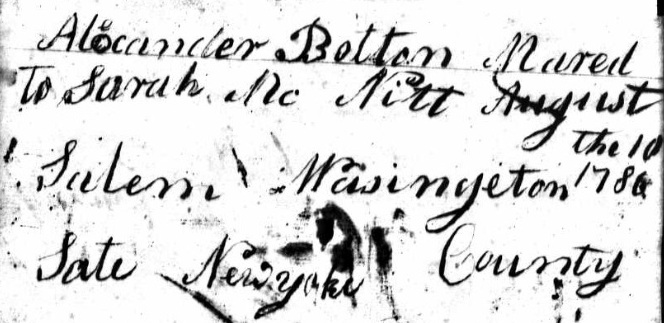 Alexander Bolton Mared
To Sarah Mc Nitt August
the 10
Salem Wasingeton 1786
Sate Newyoke County